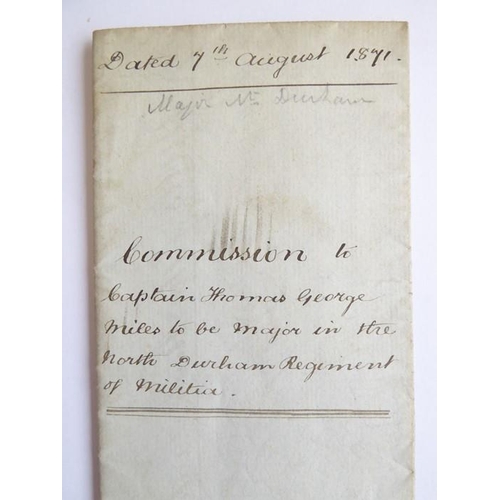 Dated 7th August 1871.
Major Nth Durham
Commission to
Captain Thomas George
Miles to be Major in the
North Durham Regiment
of Militia.